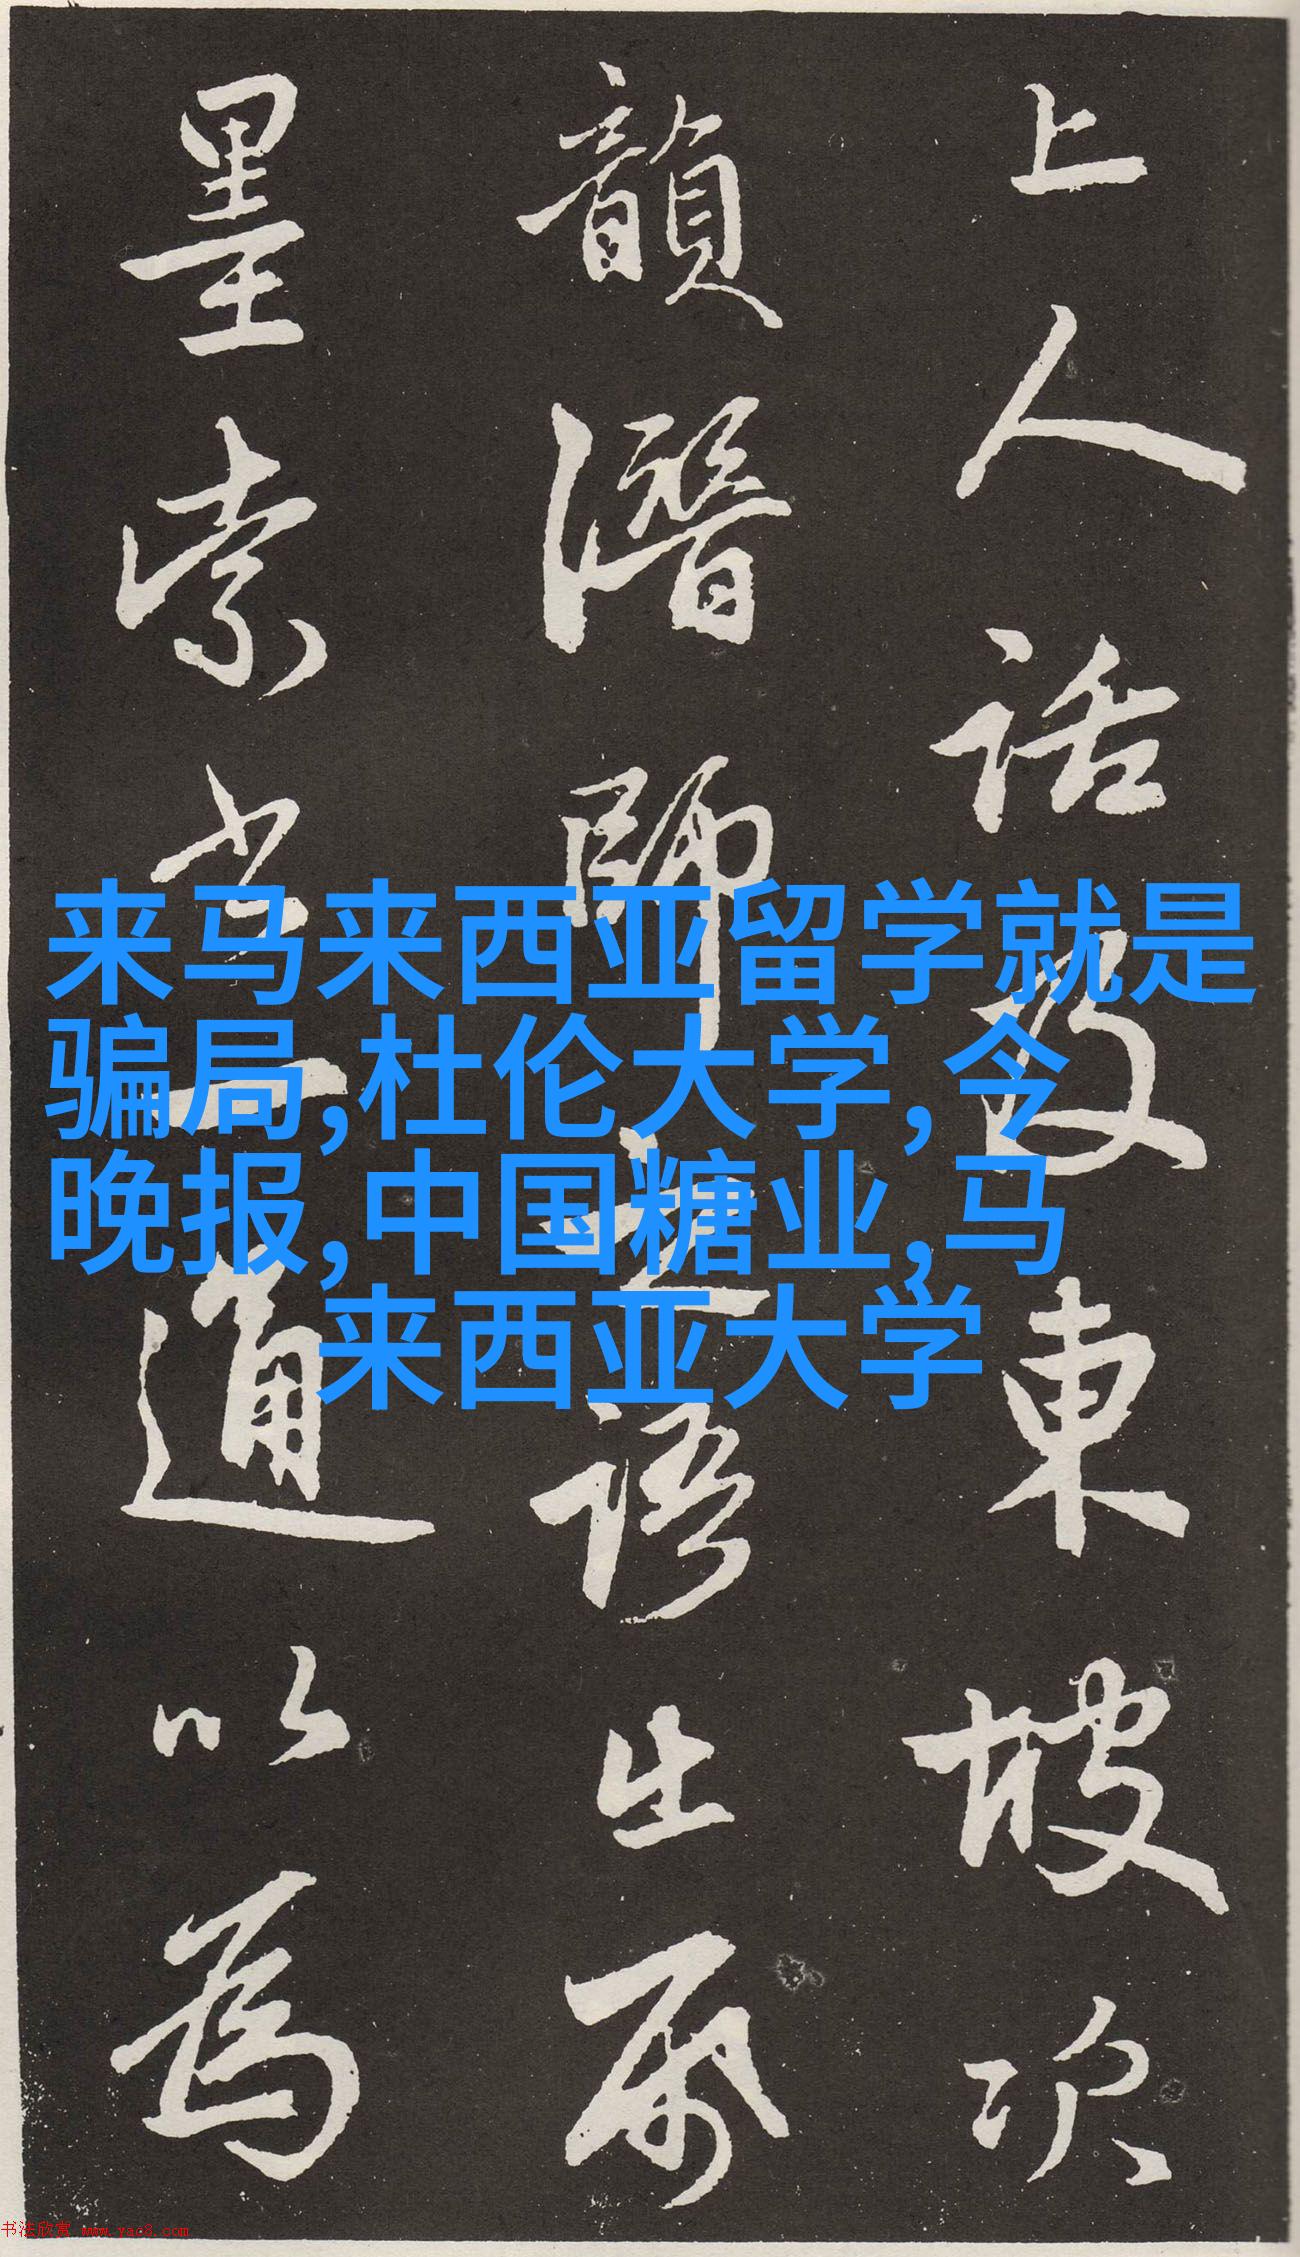 上人話及東坡次
韻潛師之語生所
墨索書一通以為
来马来西亚留学就是
骗局,杜伦大学,今
晚报,中国糖业,马
来西亚大学
书法欣赏 www.yac8.com